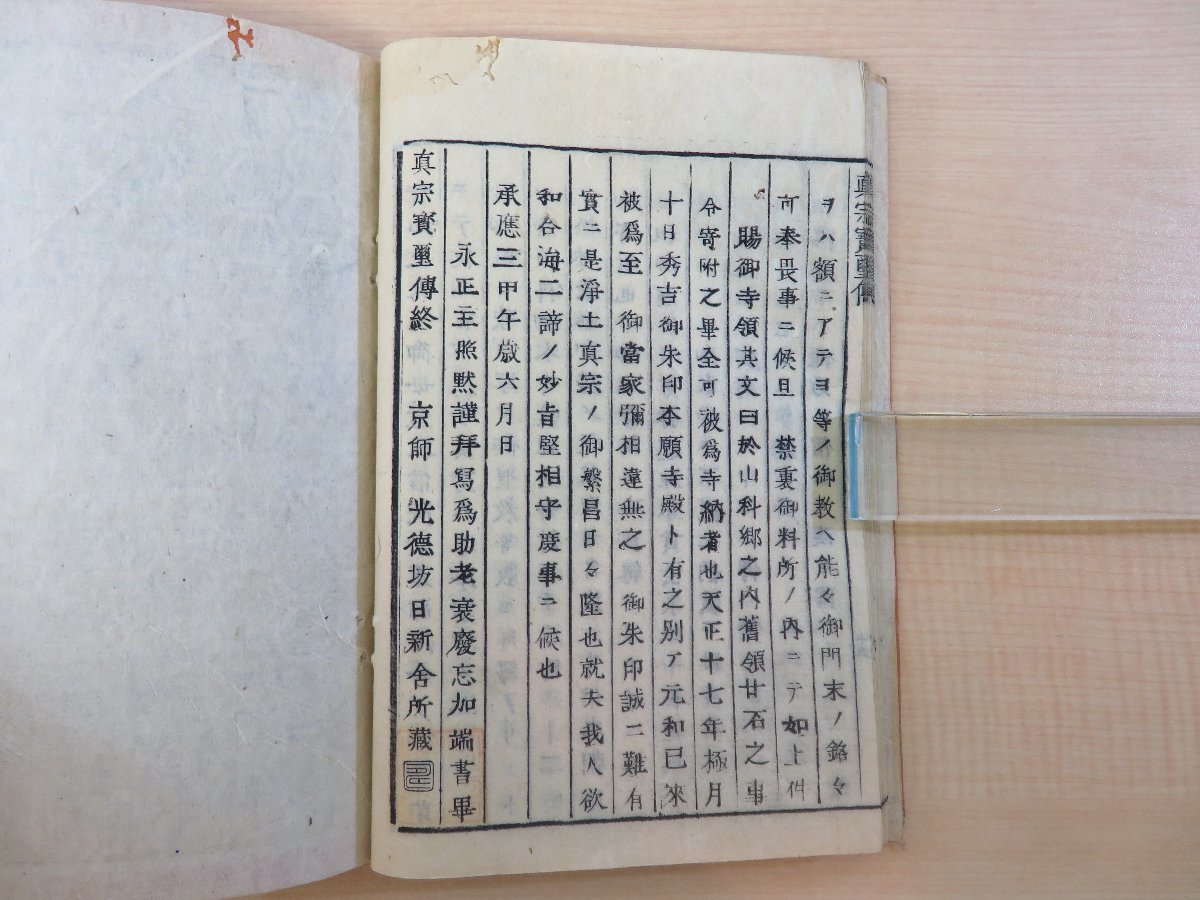 真宗寳璽傳
ヲハ額ニアテヨ等ノ御教ヘ能々御門末ノ銘々
可奉畏事ニ候且 禁裏御料所ノ内ニテ如上件
賜御寺領其文曰於山科郷之内舊領廿石之事
令寄附之畢全可被為寺納者也天正十七年極月
十日秀吉御朱印本願寺殿ト有之別ア元和已来
被為至 御當家彌相違無之 御朱印誠ニ難有
實ニ是淨土真宗ノ御繁昌日々隆也就夫我人欲
和合海二諦ノ妙旨堅相守慶事ニ候也
承應三甲午歳六月日
永正主照黙謹拜寫為助老衰慶忘加端書畢
真宗寳璽傳終 京師 光德坊日新舎所藏